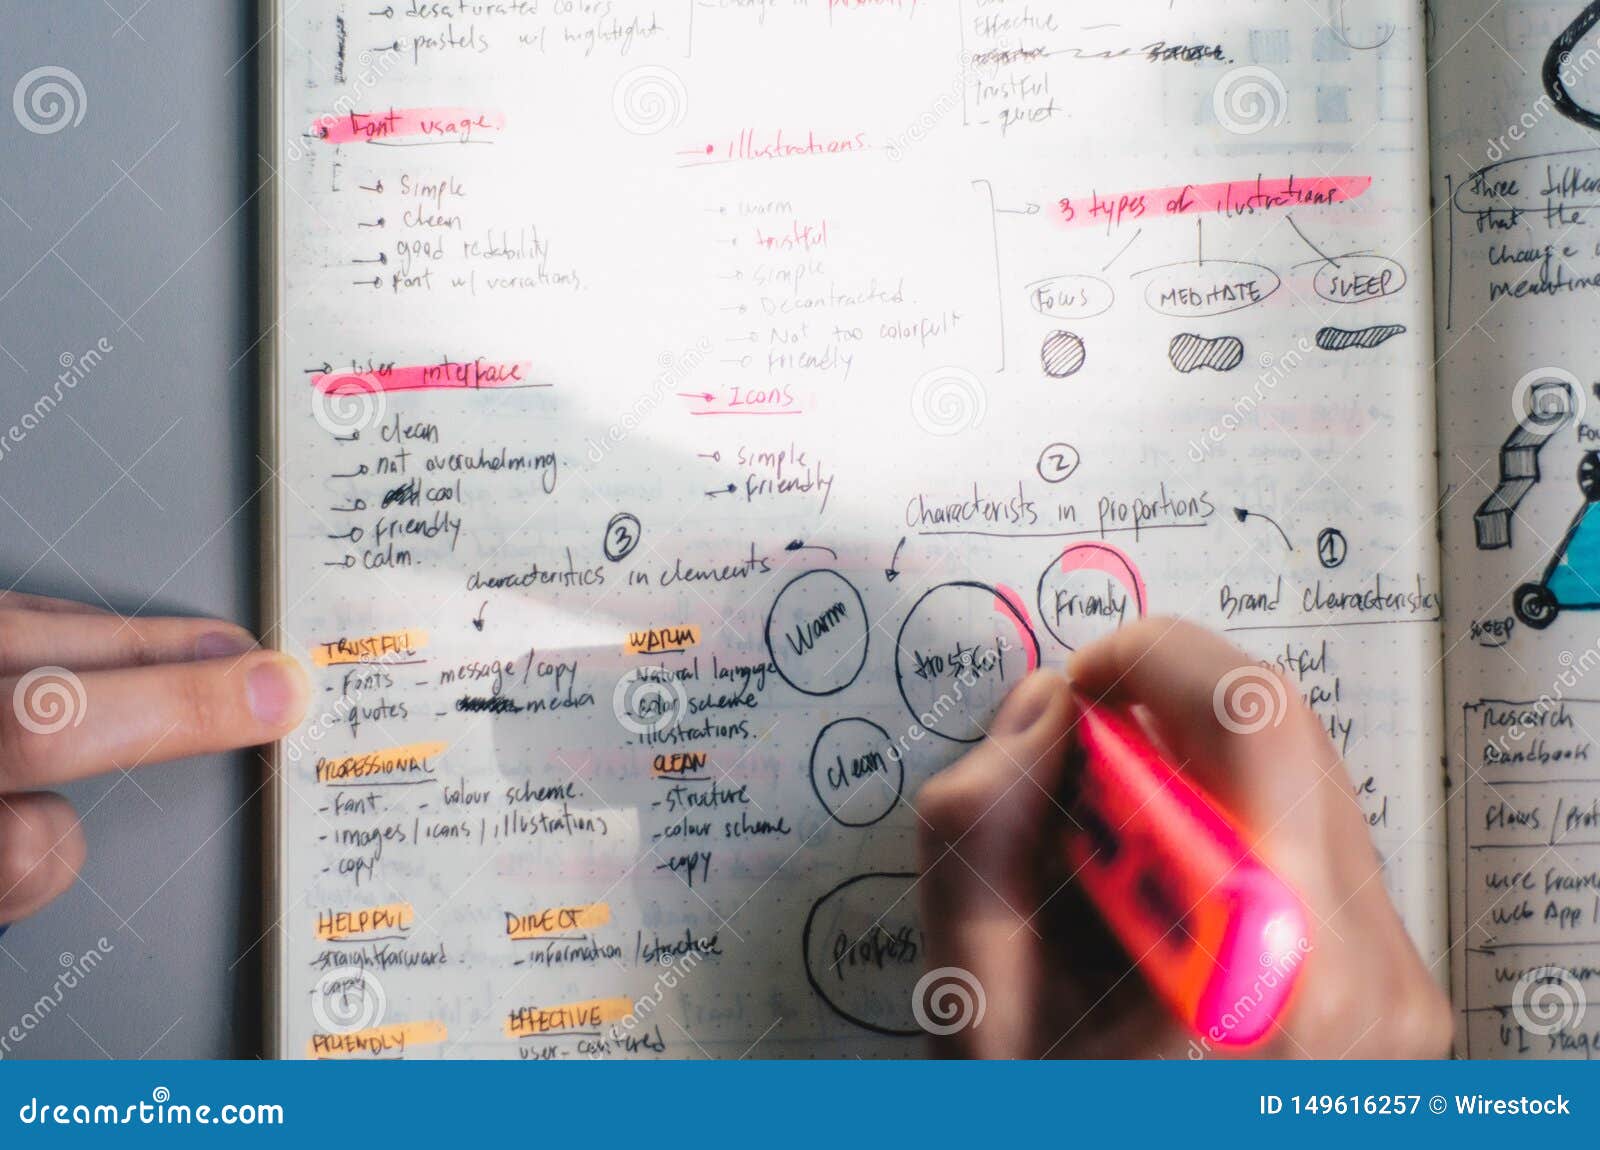 desaturated colors
pastels w/ highlight
change in personality.
Effective
trustful
- quiet.
Font usage.
Simple
clean
good redability
Font w/ variations.
Illustrations.
warm
trustful
simple
Decontracted.
Not too colorfull
friendly
3 types of ilustrations.
FOCUS
MEDITATE
SLEEP
three
that the
change
meantime
user interface
clean
not overwhelming.
cool
friendly
calm.
Icons
simple
friendly
2
characterists in proportions
1
Brand characteristics
3
characteristics in elements
Warm
trustful
Friendly
clean
TRUSTFUL
- Fonts - message / copy
- quotes - media
WARM
- natural language
- color scheme
- illustrations.
PROFESSIONAL
- Font. - colour scheme.
- images / icons / illustrations
- copy
CLEAN
- structure
- colour scheme
- copy
HELPFUL
- straightforward.
- copy
DIRECT
- information / structure
FRIENDLY
EFFECTIVE
user-centered
SLEEP
Research
Handbook
flows /
wireframe
web App /
wireframe
UI stage
dreamstime.com
ID 149616257 © Wirestock